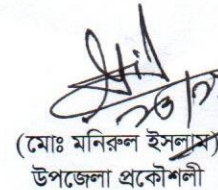 (মোঃ মনিরুল ইসলাম)
উপজেলা প্রকৌশলী